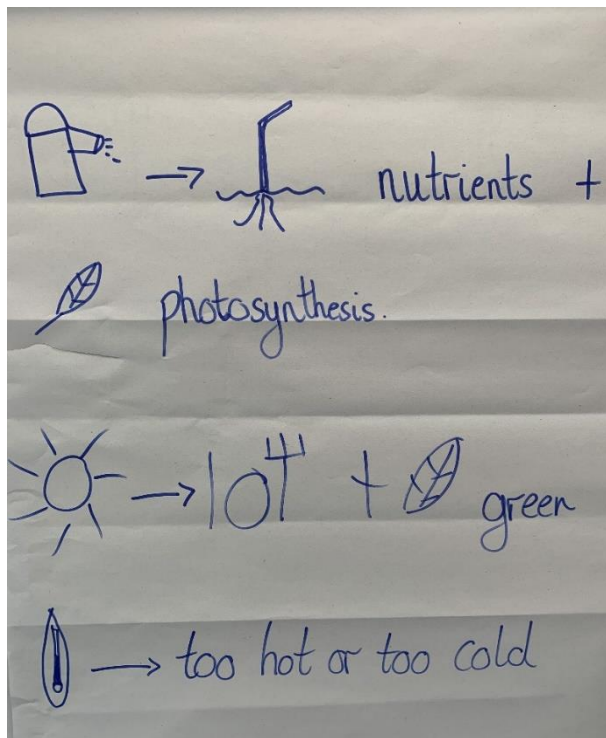 nutrients +
photosynthesis.
+ green
too hot or too cold